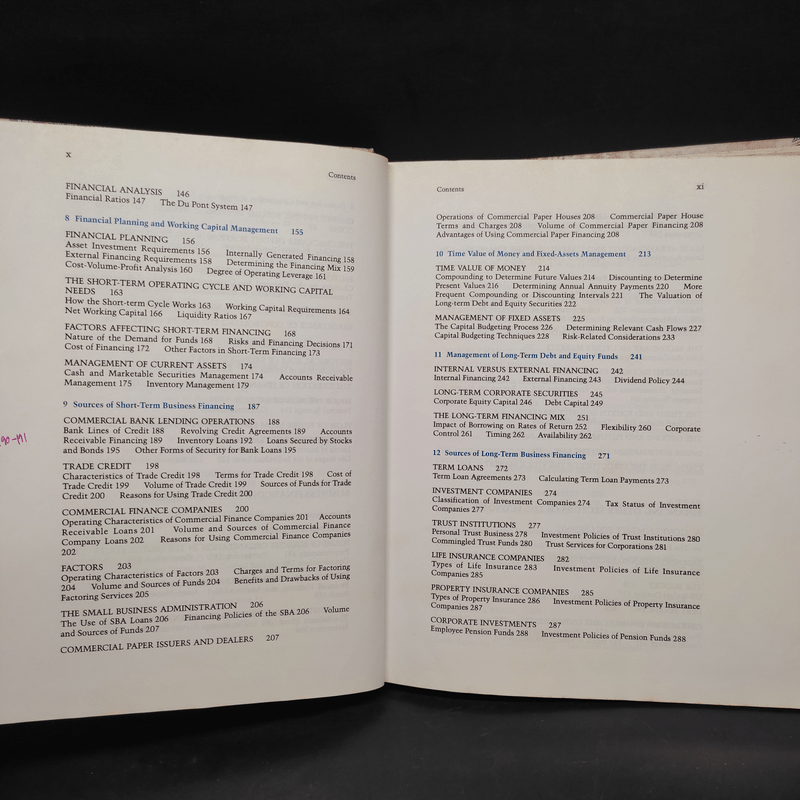 x
Contents
FINANCIAL ANALYSIS 146
Financial Ratios 147 The Du Pont System 147
8 Financial Planning and Working Capital Management 155
FINANCIAL PLANNING 156
Asset Investment Requirements 156 Internally Generated Financing 158
External Financing Requirements 158 Determining the Financing Mix 159
Cost-Volume-Profit Analysis 160 Degree of Operating Leverage 161
THE SHORT-TERM OPERATING CYCLE AND WORKING CAPITAL
NEEDS 163
How the Short-term Cycle Works 163 Working Capital Requirements 164
Net Working Capital 166 Liquidity Ratios 167
FACTORS AFFECTING SHORT-TERM FINANCING 168
Nature of the Demand for Funds 168 Risks and Financing Decisions 171
Cost of Financing 172 Other Factors in Short-Term Financing 173
MANAGEMENT OF CURRENT ASSETS 174
Cash and Marketable Securities Management 174 Accounts Receivable
Management 175 Inventory Management 179
9 Sources of Short-Term Business Financing 187
COMMERCIAL BANK LENDING OPERATIONS 188
Bank Lines of Credit 188 Revolving Credit Agreements 189 Accounts
Receivable Financing 189 Inventory Loans 192 Loans Secured by Stocks
and Bonds 195 Other Forms of Security for Bank Loans 195
TRADE CREDIT 198
Characteristics of Trade Credit 198 Terms for Trade Credit 198 Cost of
Trade Credit 199 Volume of Trade Credit 199 Sources of Funds for Trade
Credit 200 Reasons for Using Trade Credit 200
COMMERCIAL FINANCE COMPANIES 200
Operating Characteristics of Commercial Finance Companies 201 Accounts
Receivable Loans 201 Volume and Sources of Commercial Finance
Company Loans 202 Reasons for Using Commercial Finance Companies
202
FACTORS 203
Operating Characteristics of Factors 203 Charges and Terms for Factoring
204 Volume and Sources of Funds 204 Benefits and Drawbacks of Using
Factoring Services 205
THE SMALL BUSINESS ADMINISTRATION 206
The Use of SBA Loans 206 Financing Policies of the SBA 206 Volume
and Sources of Funds 207
COMMERCIAL PAPER ISSUERS AND DEALERS 207
Contents
xi
Operations of Commercial Paper Houses 208 Commercial Paper House
Terms and Charges 208 Volume of Commercial Paper Financing 208
Advantages of Using Commercial Paper Financing 208
10 Time Value of Money and Fixed-Assets Management 213
TIME VALUE OF MONEY 214
Compounding to Determine Future Values 214 Discounting to Determine
Present Values 216 Determining Annual Annuity Payments 220 More
Frequent Compounding or Discounting Intervals 221 The Valuation of
Long-term Debt and Equity Securities 222
MANAGEMENT OF FIXED ASSETS 225
The Capital Budgeting Process 226 Determining Relevant Cash Flows 227
Capital Budgeting Techniques 228 Risk-Related Considerations 233
11 Management of Long-Term Debt and Equity Funds 241
INTERNAL VERSUS EXTERNAL FINANCING 242
Internal Financing 242 External Financing 243 Dividend Policy 244
LONG-TERM CORPORATE SECURITIES 245
Corporate Equity Capital 246 Debt Capital 249
THE LONG-TERM FINANCING MIX 251
Impact of Borrowing on Rates of Return 252 Flexibility 260 Corporate
Control 261 Timing 262 Availability 262
12 Sources of Long-Term Business Financing 271
TERM LOANS 272
Term Loan Agreements 273 Calculating Term Loan Payments 273
INVESTMENT COMPANIES 274
Classification of Investment Companies 274 Tax Status of Investment
Companies 277
TRUST INSTITUTIONS 277
Personal Trust Business 278 Investment Policies of Trust Institutions 280
Commingled Trust Funds 280 Trust Services for Corporations 281
LIFE INSURANCE COMPANIES 282
Types of Life Insurance 283 Investment Policies of Life Insurance
Companies 285
PROPERTY INSURANCE COMPANIES 285
Types of Property Insurance 286 Investment Policies of Property Insurance
Companies 287
CORPORATE INVESTMENTS 287
Employee Pension Funds 288 Investment Policies of Pension Funds 288